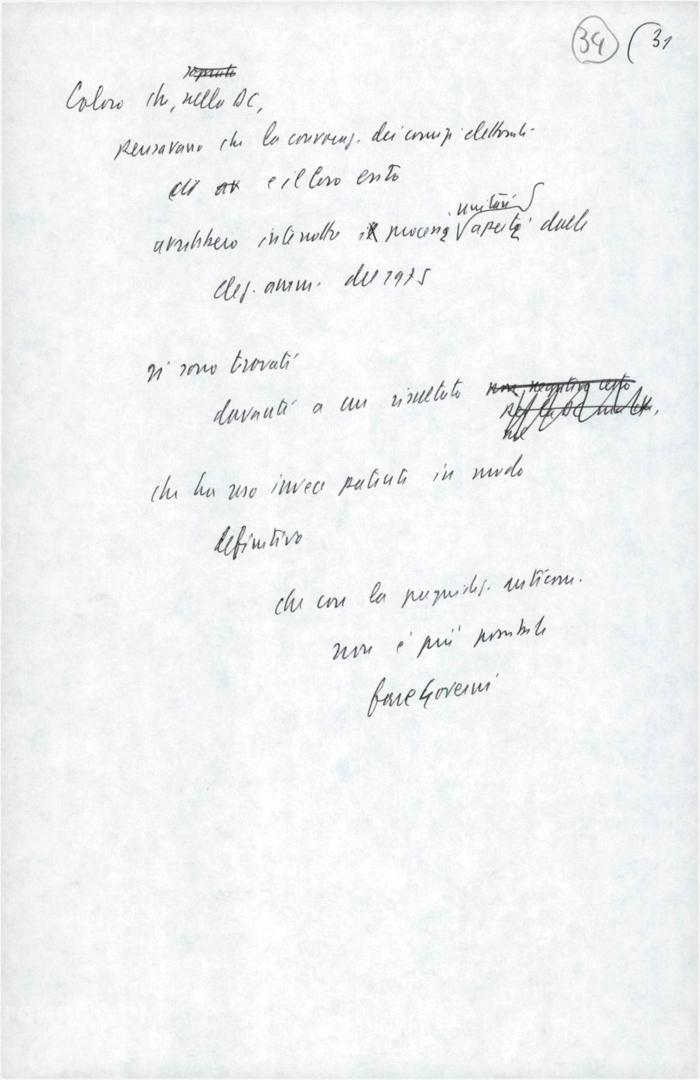 34 (31
Coloro che, nella DC,
pensavano che la convocaz. dei comizi elettorali
e il loro esito
avrebbero interrotto processi unitari aperti dalle
elez. amm. del 1975
si sono trovati
davanti a un risultato non negativo certo
per la DC
che ha reso invece palesi in modo
definitivo
che con la pregiudiz. anticom.
non è più possibile
fare Governi